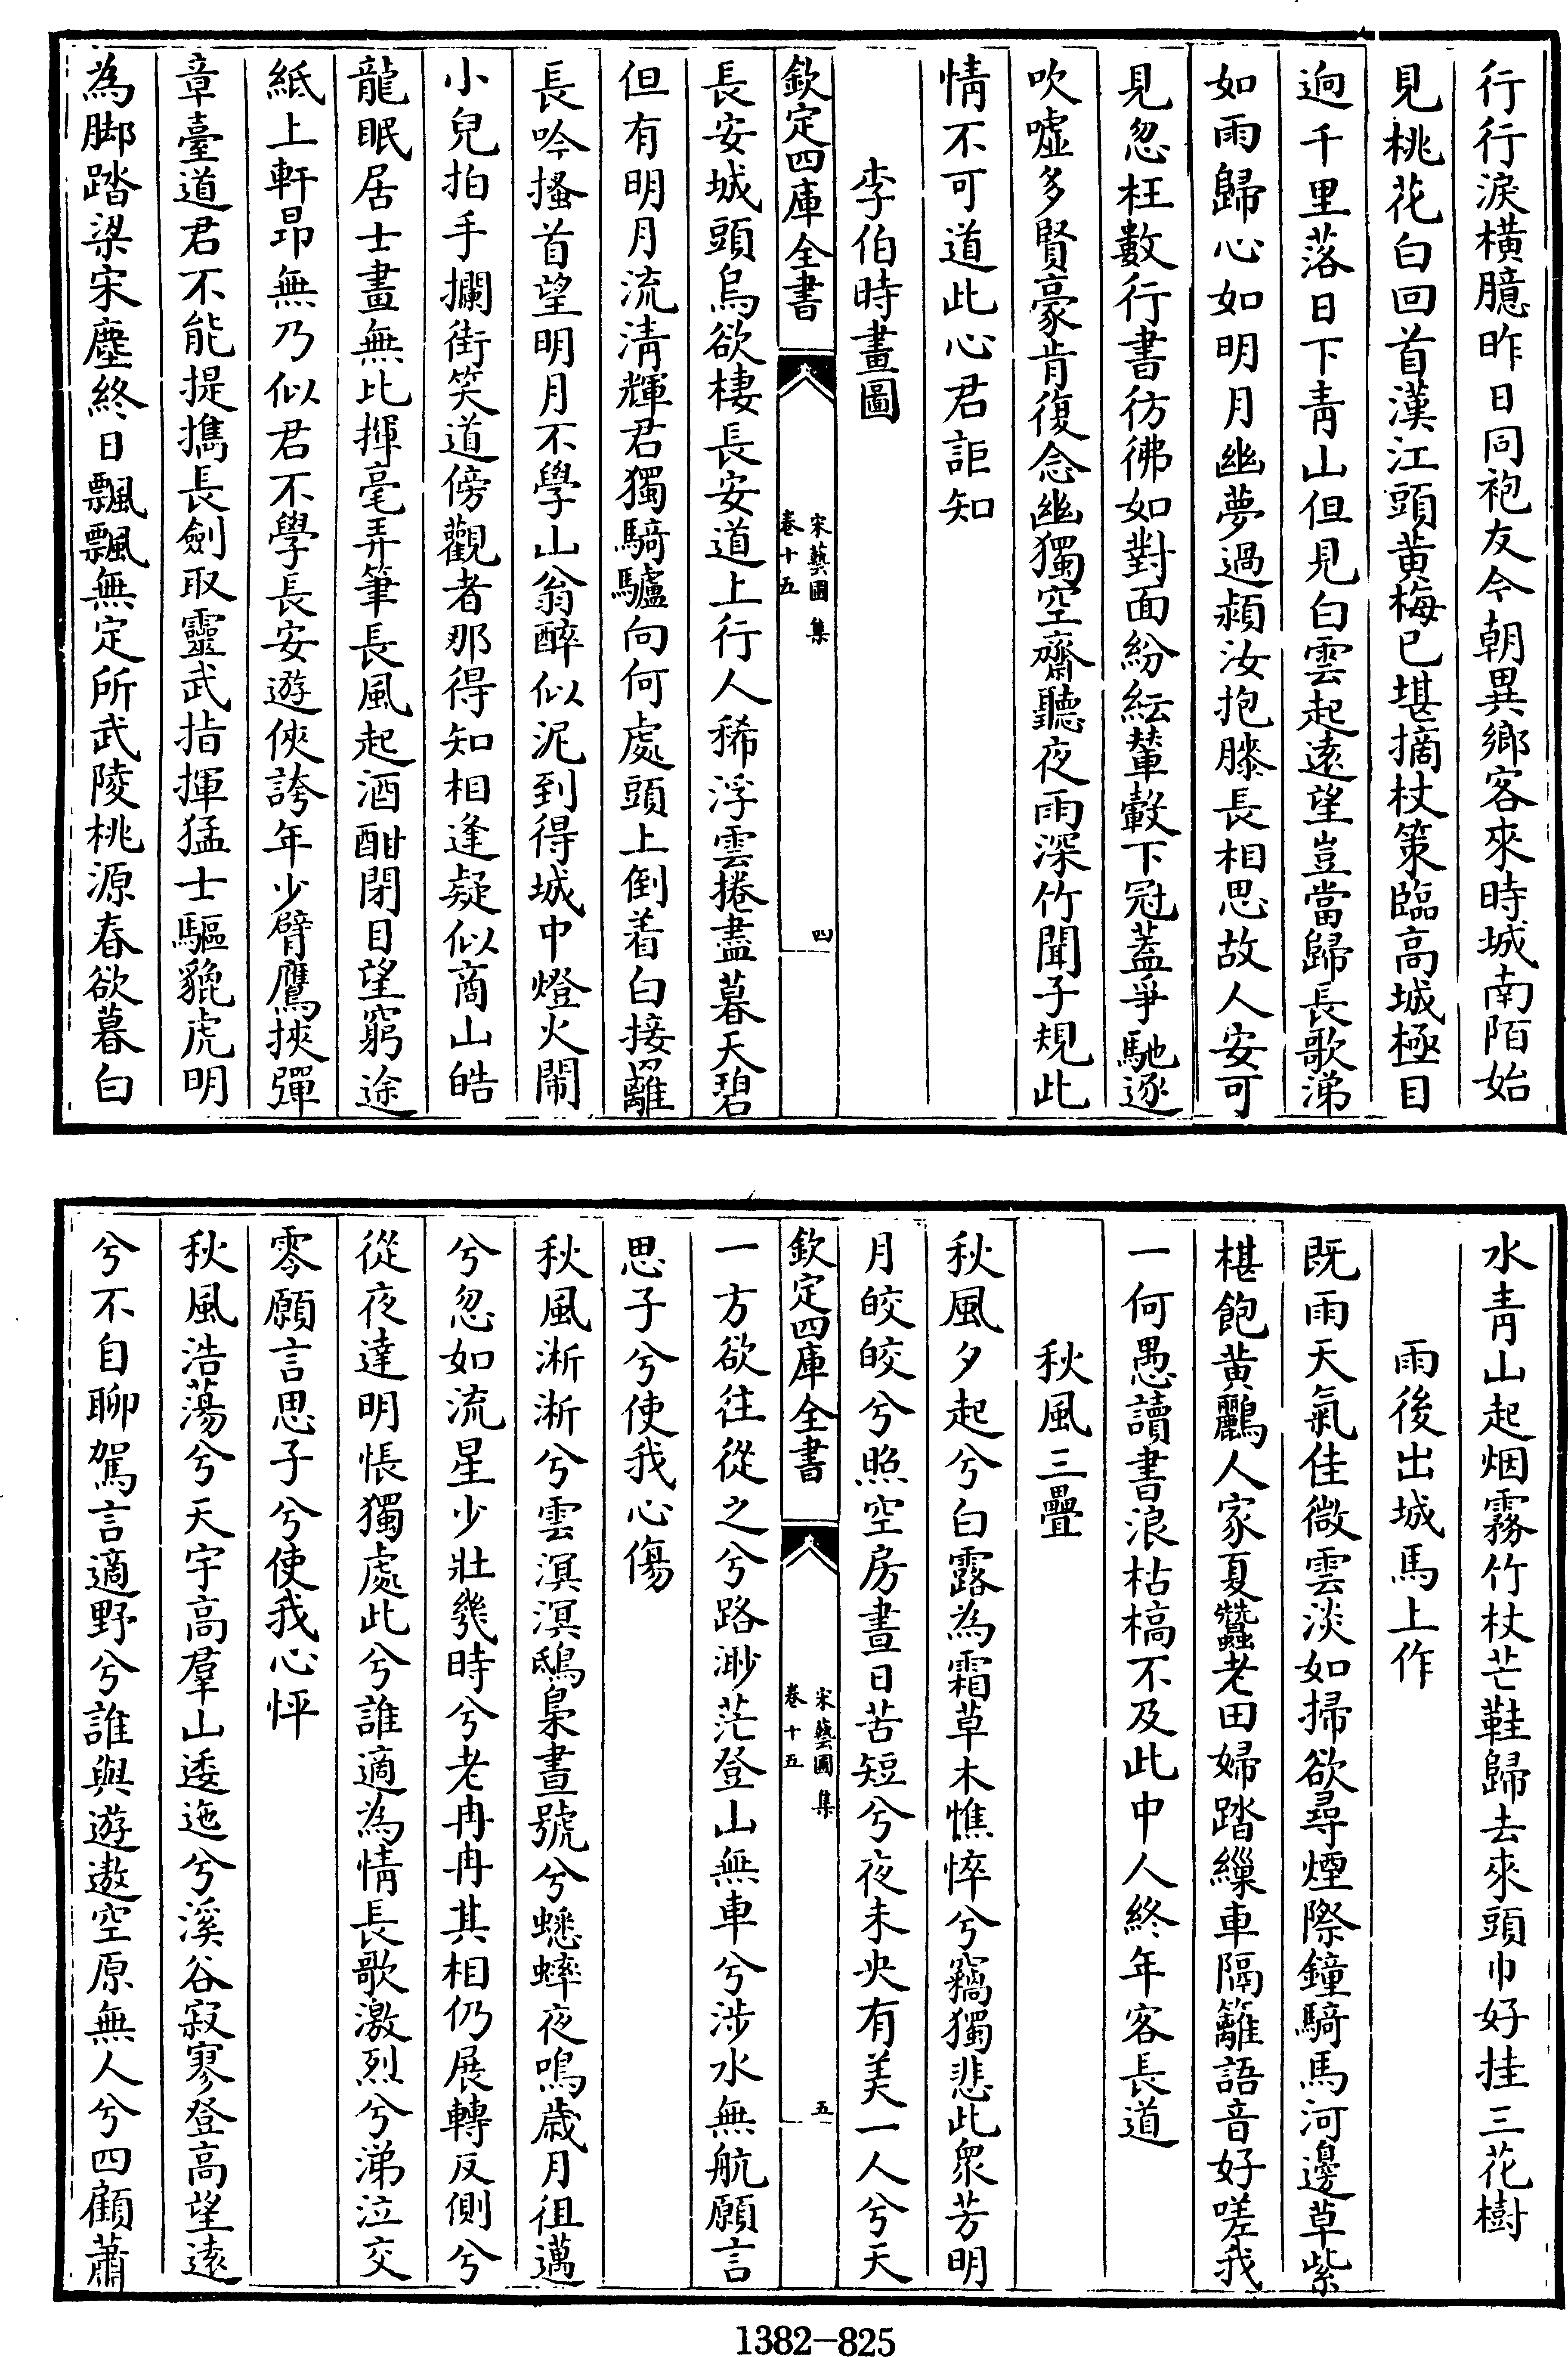 行行淚橫臆昨日同袍友今朝異鄉客來時城南陌始
見桃花白回首漢江頭黃梅已堪摘杖策臨高城極目
逈千里落日下青山但見白雲起遠望豈當歸長歌涕
如雨歸心如明月幽夢過潁汝抱膝長相思故人安可
見忽枉數行書彷彿如對面紛紜輦轂下冠蓋爭馳逐
吹噓多賢豪肯復念幽獨空齋聽夜雨深竹聞子規此
情不可道此心君詎知
李伯時畫圖
欽定四庫全書
宋藝圃集
卷十五
四
長安城頭烏欲棲長安道上行人稀浮雲捲盡暮天碧
但有明月流清輝君獨騎驢向何處頭上倒着白接䍦
長吟搔首望明月不學山翁醉似泥到得城中燈火鬧
小兒拍手攔街笑道傍觀者那得知相逢疑似商山皓
龍眠居士畫無比揮毫弄筆長風起酒酣閉目望窮途
紙上軒昂無乃似君不學長安遊俠誇年少臂鷹挾彈
章臺道君不能提攜長劍取靈武指揮猛士驅貔虎明
為脚踏梁宋塵終日飄飄無定所武陵桃源春欲暮白
水青山起烟霧竹杖芒鞋歸去來頭巾好挂三花樹
雨後出城馬上作
既雨天氣佳微雲淡如掃欲尋煙際鐘騎馬河邊草紫
椹飽黃鸝人家夏蠶老田婦踏繅車隔籬語音好嗟我
一何愚讀書浪枯槁不及此中人終年客長道
秋風三疊
秋風夕起兮白露為霜草木憔悴兮竊獨悲此衆芳明
月皎皎兮照空房晝日苦短兮夜未央有美一人兮天
欽定四庫全書
宋藝圃集
卷十五
五
一方欲往從之兮路渺茫登山無車兮涉水無航願言
思子兮使我心傷
秋風淅淅兮雲溟溟鴟梟晝號兮蟋蟀夜鳴歲月徂邁
兮忽如流星少壯幾時兮老冉冉其相仍展轉反側兮
從夜達明悵獨處此兮誰適為情長歌激烈兮涕泣交
零願言思子兮使我心怦
秋風浩蕩兮天宇高羣山逶迤兮溪谷寂寥登高望遠
兮不自聊駕言適野兮誰與遊遨空原無人兮四顧蕭
1382-825